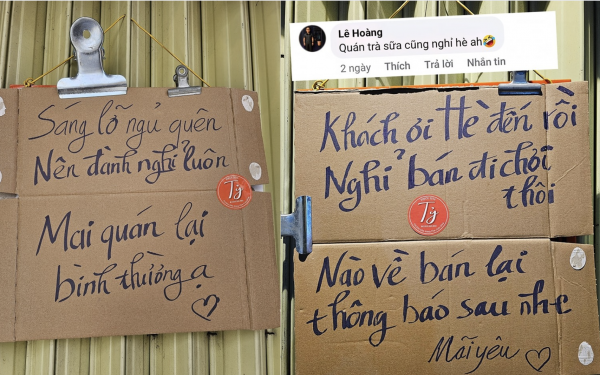 Sáng lỡ ngủ quên
Nên đành nghỉ luôn
Mai quán lại
bình thường ạ
Tý
Lê Hoàng
Quán trà sữa cũng nghỉ hè ah🤣
2 ngày Thích Trả lời Nhắn tin
Khách ơi Hè đến rồi
Nghỉ bán đi chơi
thôi
Tý
Nào về bán lại
thông báo sau nhe
Mãi yêu